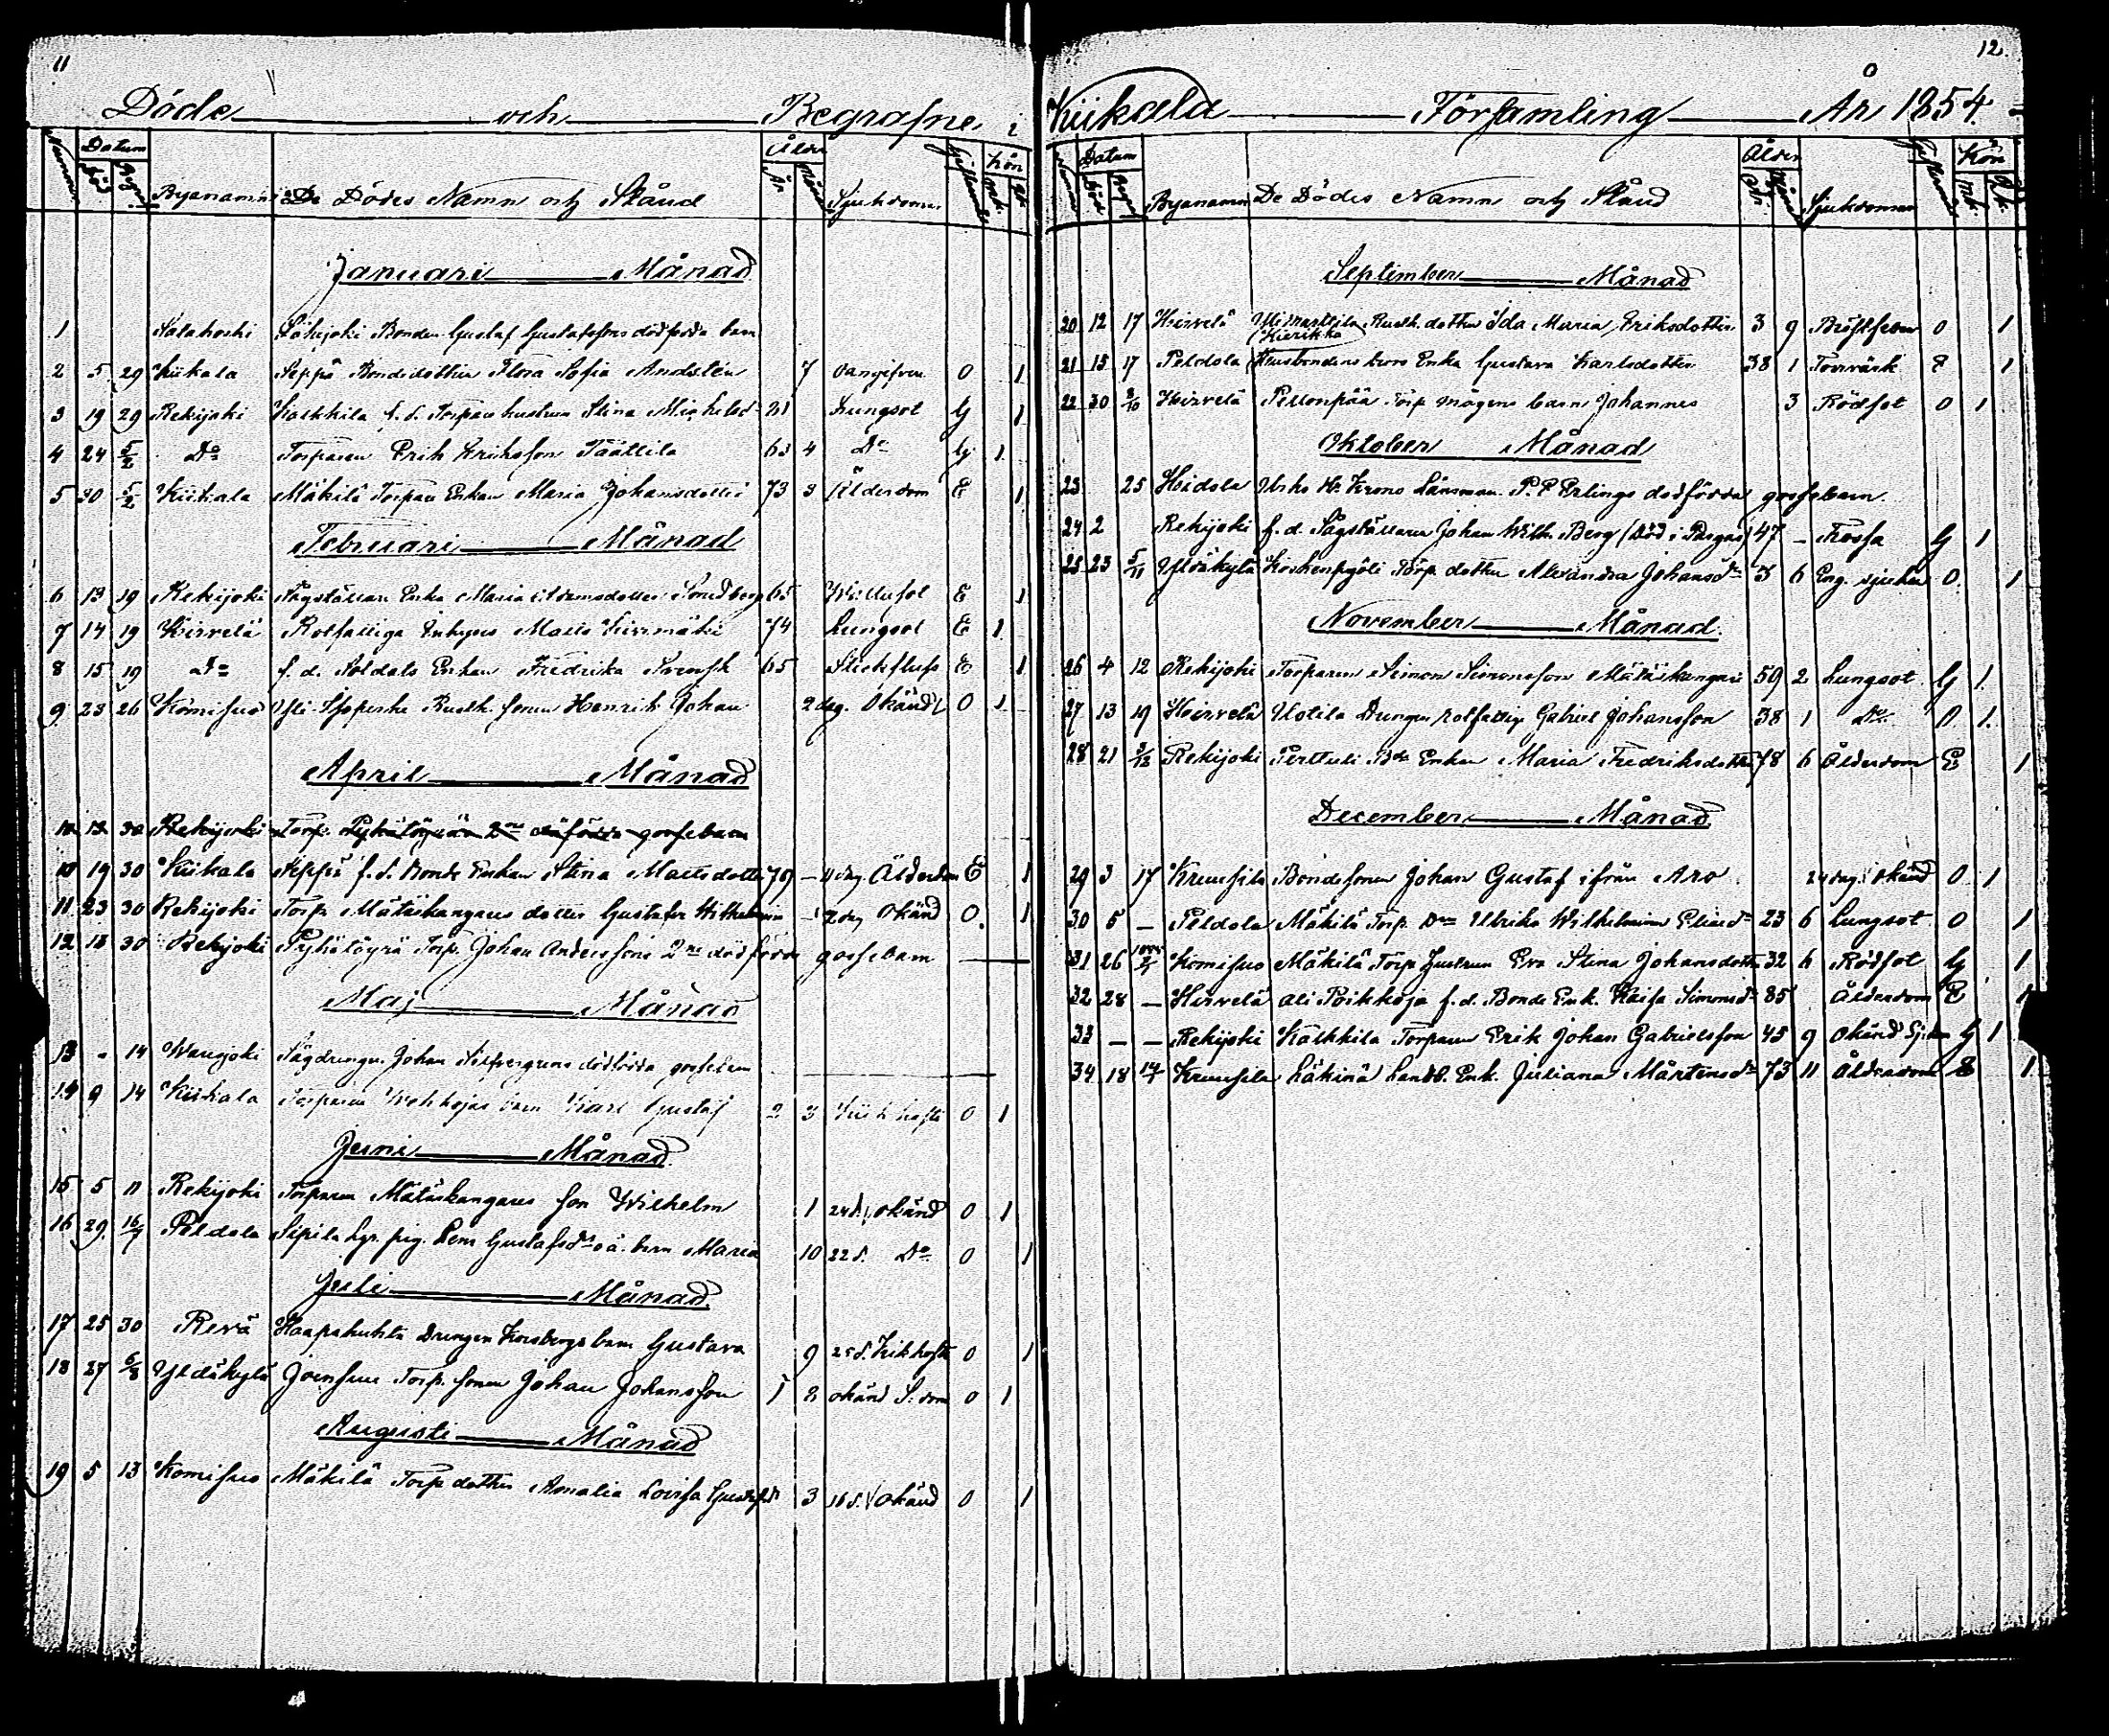 11
Döde och Begrafne i
Numro Datum Byanamn De Dödes Namn och Stånd Ålder Sjukdomar Kön
död År
Januari Månad
1 Salakoski Bonden Gustaf Gustafssons dödfödda barn
2 5 29 Kiikala Seppä Bondedotter Flora Sofia Andstén 7 Oangifven O 1
3 19 29 Rekijoki Kalkkila f. d. Torpare hustrun Stina Michelsd 21 Lungsot G 1
4 24 5/2 Do Torparen Erik Eriksson Täättilä 63 4 Do G 1
5 30 5/2 Kiikala Mäkilä Torpare Enkan Maria Johansdotter 73 3 Ålderdom E 1
Februari Månad
6 13 19 Rekijoki Sågställare Enka Maria Adamsdotter 65 E 1
7 14 19 Hirvelä Rotfattiga Inhyses Matts 74 Lungsot E 1
8 15 19 Do f. d. Soldats Enkan Fredrika 65 Stickfluss E 1
9 23 26 Komisuo Yli Rusth. sonen Henrik Johan 2 dag. Okänd O 1
April Månad
10 12 30 Rekijoki Torp. Pyhälöyrän 2ne dödfödde gossebarn
10 19 30 Kiikala Seppä f. d. Bonde Enkan Stina Mattsdotter 79 – 11 dag. Ålderdom E 1
11 23 30 Rekijoki Torp. Mätäskangares dotter Gustafva Wilhelmina – 2 dag Okänd O 1
12 18 30 Rekijoki Pyhälöyrä Torp. Johan Anderssons 2ne dödfödde gossebarn
Maj Månad
13 - 14 Sågdrengen Johan dödfödda gossebarn
14 9 14 Kiikala Torparen barn Karl Gustaf 2 3 Kikhosta O 1
Juni Månad
15 5 11 Rekijoki Torparen Mätäskangares son Wilhelm 1 24 d. okänd O 1
16 29 16/7 Peldola Sipilä pig. Lena Gustafsdr oä. barn Maria 10 22 d. Do O 1
Juli Månad
17 25 30 Revä Haapahuhta Drengen barn Gustava 9 25 d. Kikhosta O 1
18 27 6/8 Yltäkylä Joensuu Torp. sonen Johan Johansson 1 2 okänd S:dom O 1
Augusti Månad
19 5 13 Komisuo Mäkilä Torp dotter Amalia Lovisa Gustafsdr 3 16 d. Okänd O 1
12.
Kiikala Församling År 1854.
Numro Datum Byanamn De Dödes Namn och Stånd Ålder Sjukdomar Kön
död År Mk. Qk.
September Månad
20 12 17 Hirvelä Ylimarttila Rusth. dotter Ida Maria Eriksdotter 3 9 Bröstfeber O 1
Kierikka
21 15 17 Peldola Husbondens mors Enka Gustava Karlsdotter 38 1 Torrvärk E 1
22 30 8/10 Hirvelä Pellonpää Torp mågens barn Johannes 3 Rödsot O 1
Oktober Månad
23 25 Heidola Krono Länsman P. E Erlings dödfödda gossebarn.
24 2 Rekijoki f. d. Sågställaren Johan Wilh. Berg (död i Pargas) 47 – Frossa G 1
25 23 5/11 Yltäkylä Koskenpyöli Torp. dotter Alexandra Johansdr 3 6 Eng. sjukan O 1
November Månad
26 4 12 Rekijoki Torparen Simon Simonsson Mätäskangare 59 2 Lungsot G 1
27 13 19 Hirvelä Ulotila Drengen rotfattige Gabriel Johansson 38 1 Do O 1.
28 21 3/12 Rekijoki Perttuli Bde Enkan Maria Fredriksdotter 78 6 Ålderdom E 1
December Månad
29 3 17 Kruusila Bondesonen Johan Gustaf ifrån Aro 24 dag. Okänd O 1
30 5 – Peldola Mäkilä Torp. Dr Ulrika Wilhelmina Eliasdr 23 6 Lungsot O 1
31 26 Komisuo Mäkilä Torp hustrun Eva Stina Johansdotter 32 6 Rödsot G 1
32 28 – Hirvelä Ali Poikkoja f. d. Bonde Enk. Kaisa Simonsdr 85 Ålderdom E 1
33 – – Rekijoki Kalkkila Torparen Erik Johan Gabrielsson 45 9 Okänd Sj:dom G 1
34 18 14/1 Kruusila Läkinä Landb. Enk. Juliana Mårtensdr 73 11 Ålderdom E 1